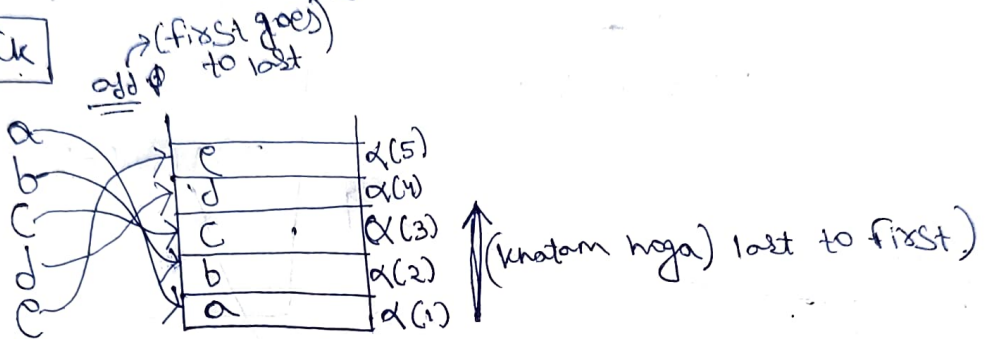 ck
(first goes)
to last
add
a
b
c
d
e
e α(5)
d α(4)
c α(3)
b α(2)
a α(1)
(khatam hoga) last to first)